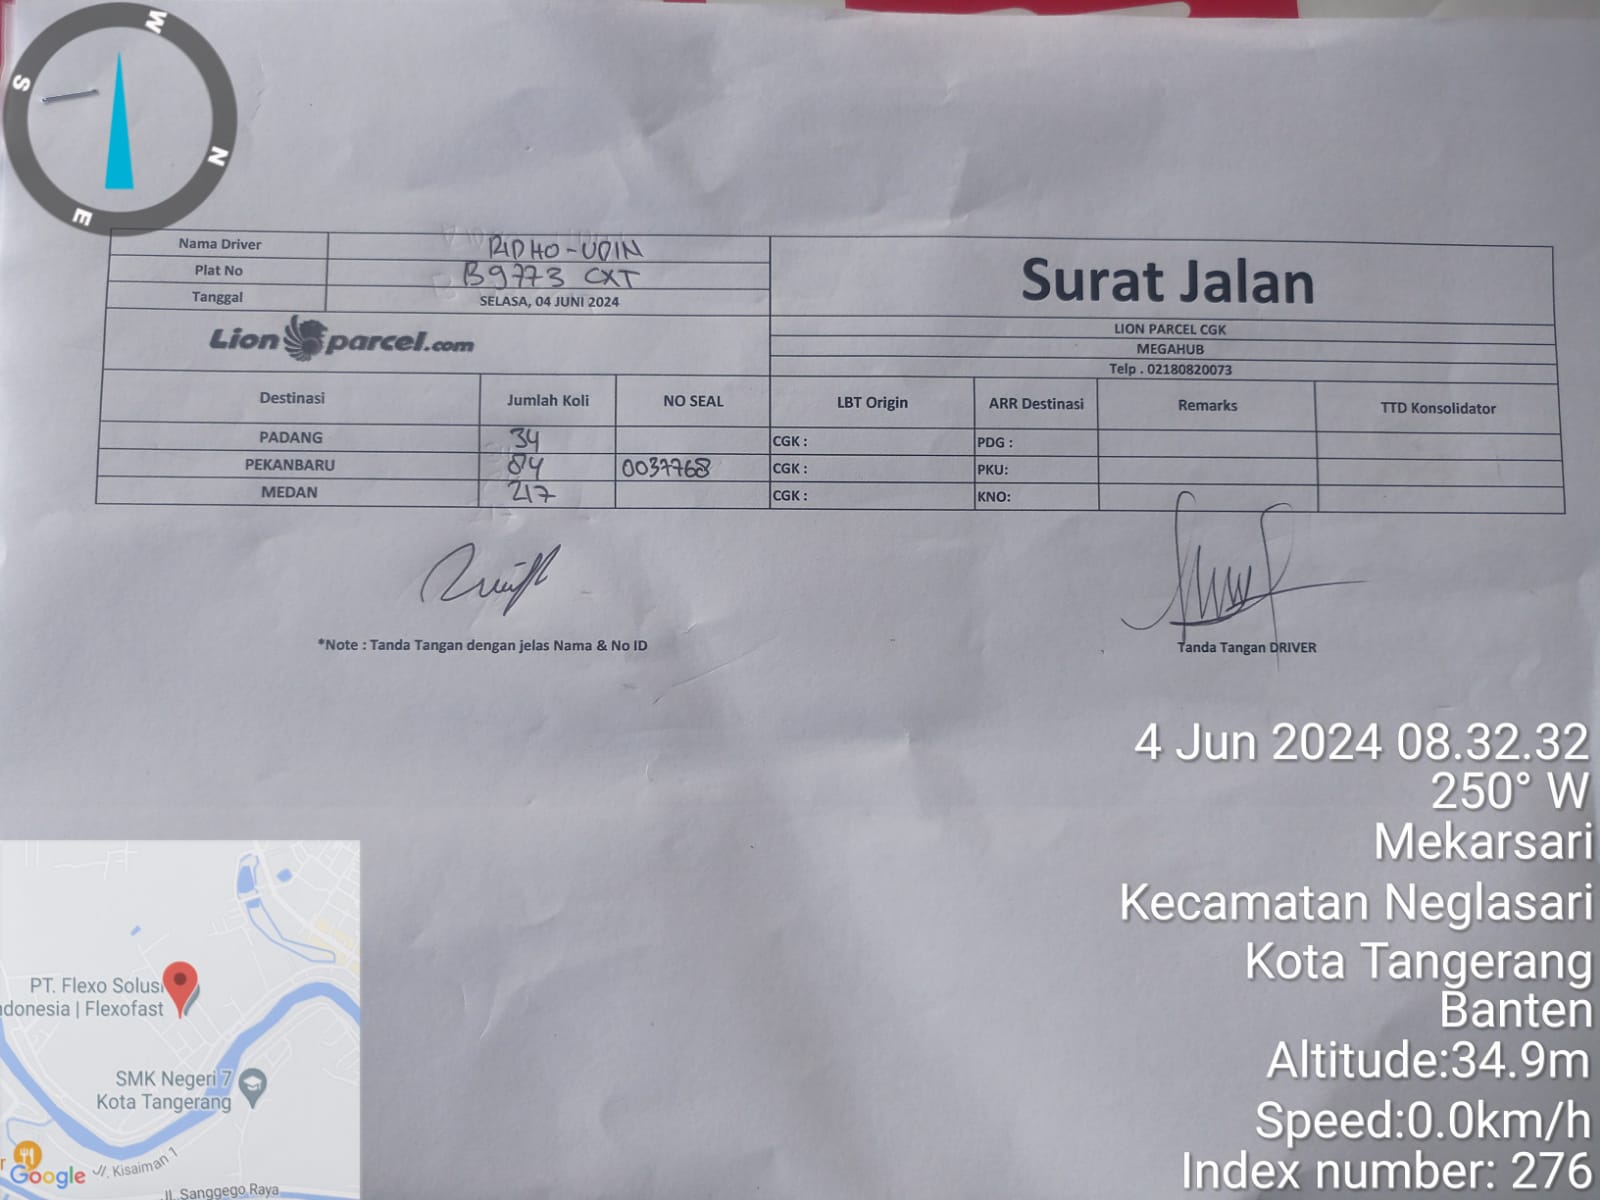 W
S
N
E
Nama Driver RIDHO-UDIN
Plat No B 9773 CXT
Tanggal SELASA, 04 JUNI 2024
Surat Jalan
Lion parcel.com
LION PARCEL CGK
MEGAHUB
Telp . 02180820073
Destinasi Jumlah Koli NO SEAL LBT Origin ARR Destinasi Remarks TTD Konsolidator
PADANG 34 CGK : PDG :
PEKANBARU 84 0037768 CGK : PKU:
MEDAN 217 CGK : KNO:
*Note : Tanda Tangan dengan jelas Nama & No ID
Tanda Tangan DRIVER
4 Jun 2024 08.32.32
250° W
Mekarsari
Kecamatan Neglasari
Kota Tangerang
Banten
Altitude:34.9m
Speed:0.0km/h
Index number: 276
PT. Flexo Solusi
ndonesia | Flexofast
SMK Negeri 7
Kota Tangerang
Google
Jl. Kisaiman 1
Jl. Sanggego Raya